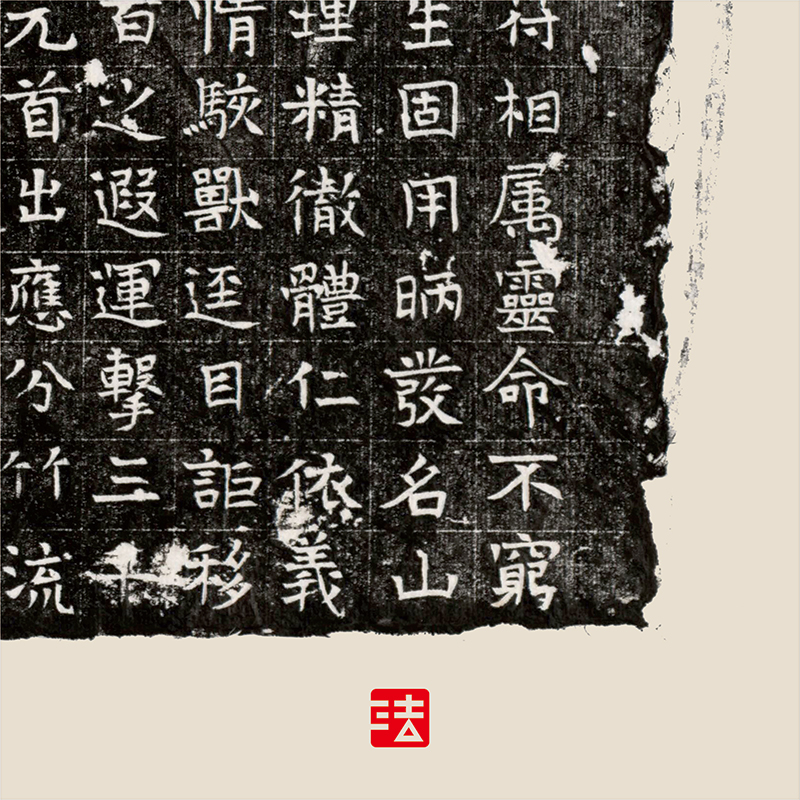 符相属靈命不窮
生固用昞發名山
理精徹體仁依義
情駭獸迋目詎移
百之遐運擊三千
元首出應分竹流
法